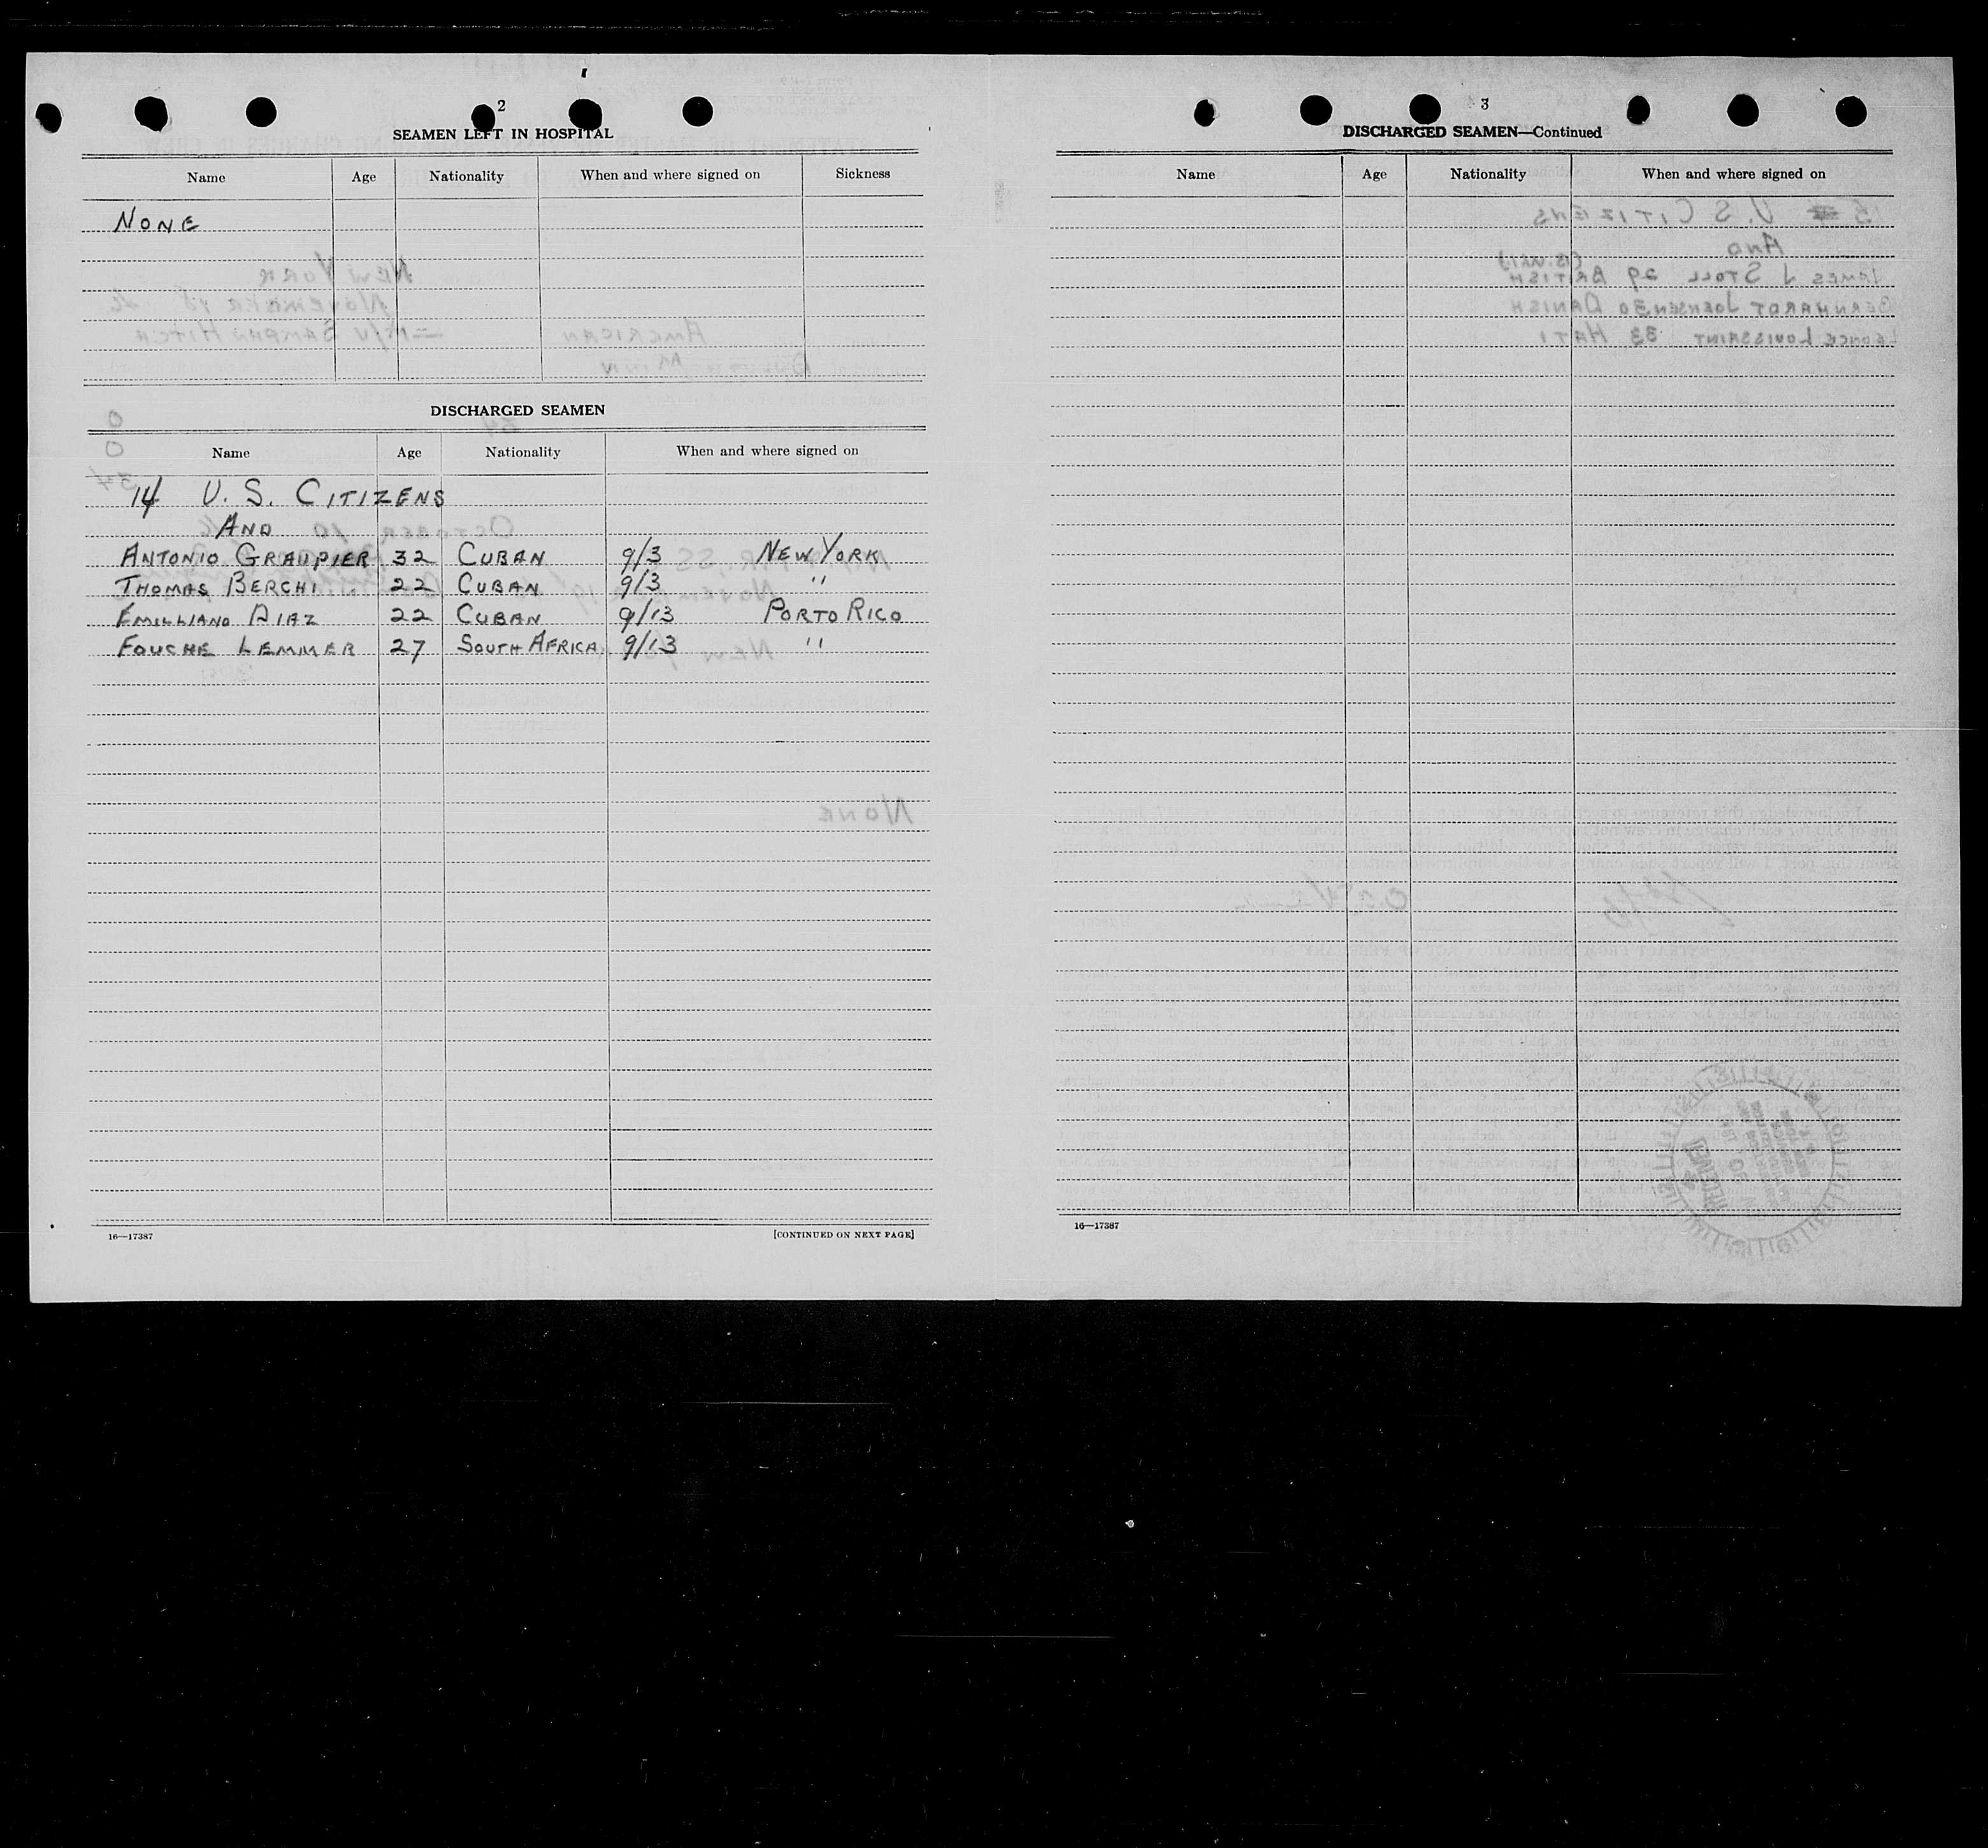 2
SEAMEN LEFT IN HOSPITAL
Name Age Nationality When and where signed on Sickness
NONE
DISCHARGED SEAMEN
Name Age Nationality When and where signed on
14 U. S. CITIZENS
AND
ANTONIO GRAUPIER 32 CUBAN 9/3 NEW YORK
THOMAS BERCHI 22 CUBAN 9/3 "
EMILLIANO DIAZ 22 CUBAN 9/13 PORTO RICO
FOUCHE LEMMER 27 SOUTH AFRICA 9/13 "
16—17387
[CONTINUED ON NEXT PAGE]
3
DISCHARGED SEAMEN—Continued
Name Age Nationality When and where signed on
16—17387